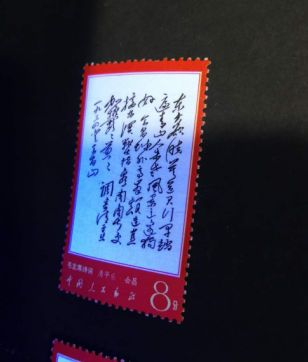 东方欲晓莫道君行早踏
遍青山人未老风景这边独
好会昌城外高峰颠连直
接东溟战士指看南粤更
郁郁葱葱
毛主席诗词 清平乐 会昌
中国人民邮政 8分